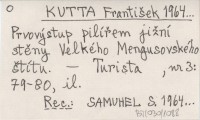 O KUTTA František, 1964...
Prvovýstup pilířem jižní
stěny Velkého Mengusovského
štítu. — Turista , nr 3:
79-80, il.
Rec.: SAMUHEL S. 1964...